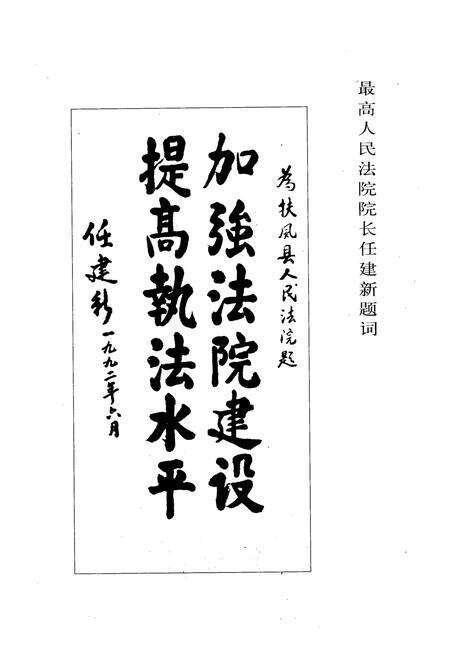 最高人民法院院长任建新题词
为扶风县人民法院题
加強法院建设
提高執法水平
任建新
一九九二年六月